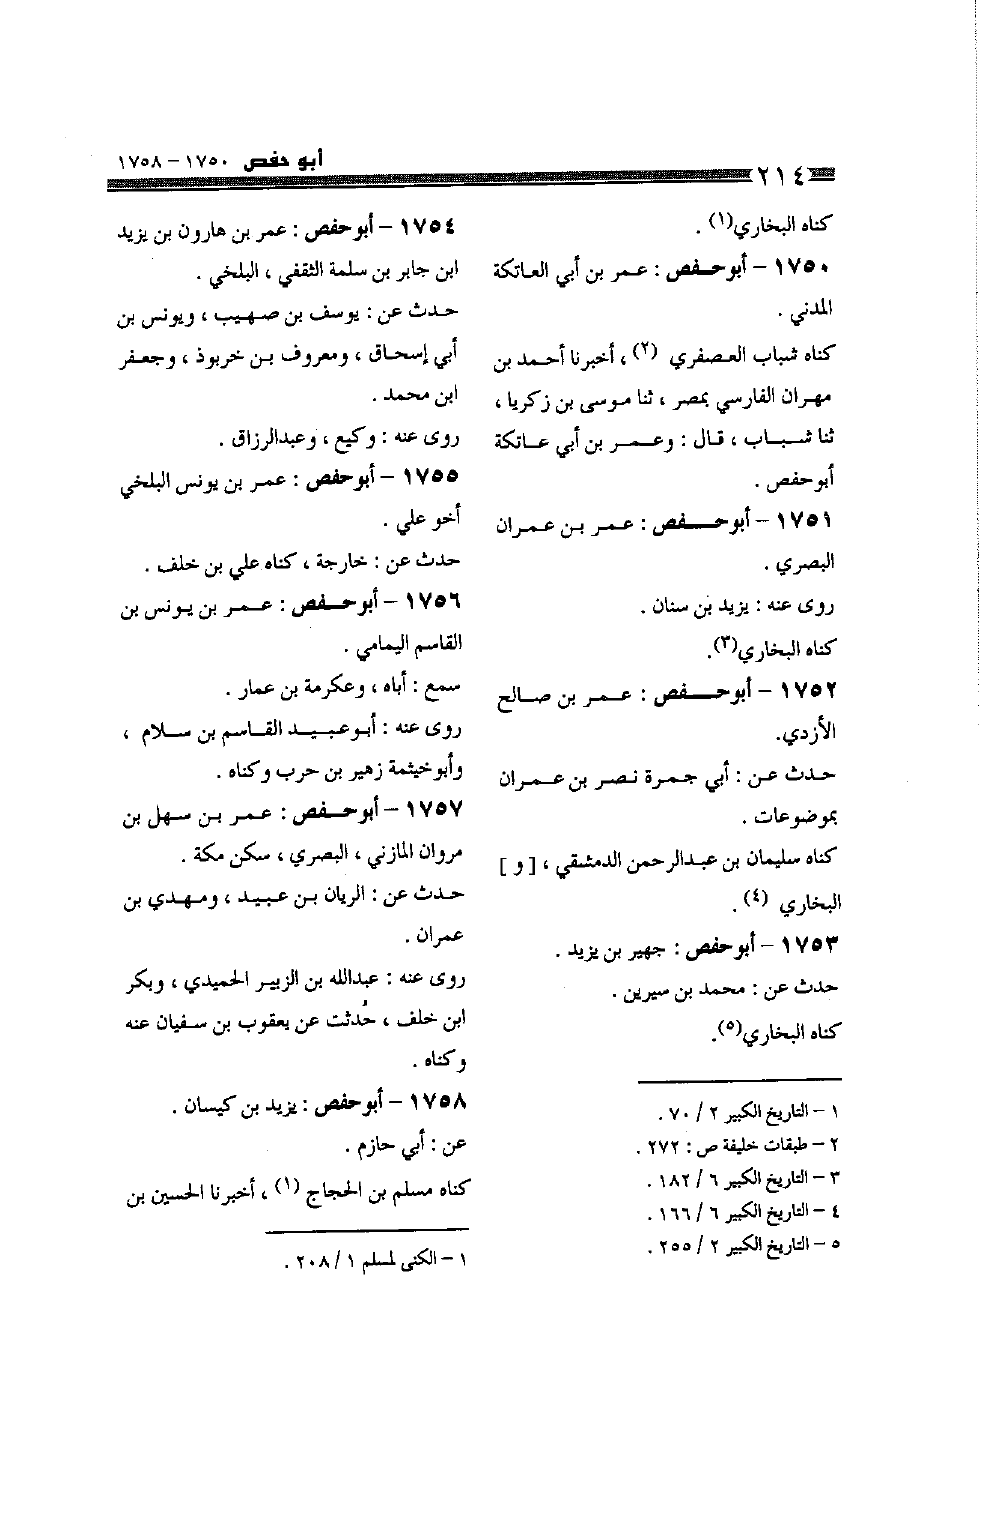 أبو حفص ١٧٥٠ – ١٧٥٨
٢١٤
كناه البخاري(١) .
١٧٥٠ – أبو حفص : عمر بن أبي العاتكة
المدني .
كناه شباب العصفري (٢) ، أخبرنا أحمد بن
مهران الفارسي بمصر ، ثنا موسى بن زكريا ،
ثنا شباب ، قال : وعمر بن أبي عاتكة
أبو حفص .
١٧٥١ – أبو حفص : عمر بن عمران
البصري .
روى عنه : يزيد بن سنان .
كناه البخاري(٣).
١٧٥٢ – أبو حفص : عمر بن صالح
الأزدي.
حدث عن : أبي جمرة نصر بن عمران
بموضوعات .
كناه سليمان بن عبدالرحمن الدمشقي ، [ و ]
البخاري (٤) .
١٧٥٣ – أبو حفص : جهير بن يزيد .
حدث عن : محمد بن سيرين .
كناه البخاري(٥).
١ – التاريخ الكبير ٢ / ٧٠ .
٢ – طبقات خليفة ص : ٢٧٢ .
٣ – التاريخ الكبير ٦ / ١٨٢ .
٤ – التاريخ الكبير ٦ / ١٦٦ .
٥ – التاريخ الكبير ٢ / ٢٥٥ .
١٧٥٤ – أبو حفص : عمر بن هارون بن يزيد
ابن جابر بن سلمة الثقفي ، البلخي .
حدث عن : يوسف بن صهيب ، ويونس بن
أبي إسحاق ، ومعروف بن خربوذ ، وجعفر
ابن محمد .
روى عنه : وكيع ، وعبدالرزاق .
١٧٥٥ – أبو حفص : عمر بن يونس البلخي
أخو علي .
حدث عن : خارجة ، كناه علي بن خلف .
١٧٥٦ – أبو حفص : عمر بن يونس بن
القاسم اليمامي .
سمع : أباه ، وعكرمة بن عمار .
روى عنه : أبو عبيد القاسم بن سلام ،
وأبو خيثمة زهير بن حرب وكناه .
١٧٥٧ – أبو حفص : عمر بن سهل بن
مروان المازني ، البصري ، سكن مكة .
حدث عن : الريان بن عبيد ، ومهدي بن
عمران .
روى عنه : عبدالله بن الزبير الحميدي ، وبكر
ابن خلف ، حُدثت عن يعقوب بن سفيان عنه
وكناه .
١٧٥٨ – أبو حفص : يزيد بن كيسان .
عن : أبي حازم .
كناه مسلم بن الحجاج (١) ، أخبرنا الحسين بن
١ – الكنى لمسلم ١ / ٢٠٨ .